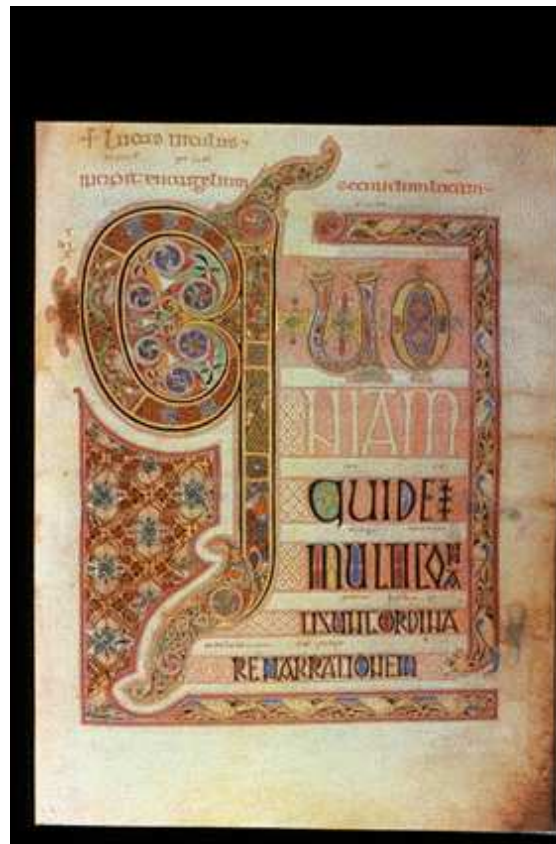 + Lucas uitulus
incipit euangelium secundum lucam
QUO
NIAM
QUIDE
MULTI CONA
TI SUNT ORDINA
RE NARRATIONEM